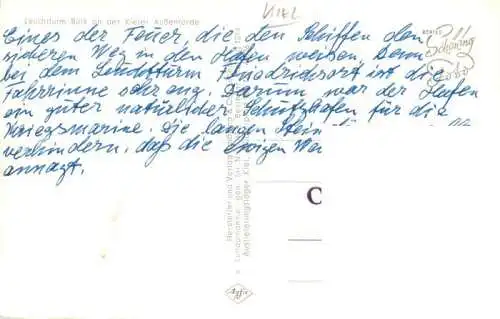 Leuchtturm Bülk an der Kieler Außenförde
KIEL
Eines der Feuer, die den Schiffen den
sicheren Weg in den Hafen weisen. Denn
bei dem Leuchtturm Friedrichsort ist die
Fahrrinne sehr eng. Darum war der Hafen
ein guter natürlicher Schutzhafen für die
Kriegsmarine. Die langen Stein
verhindern, daß die ewigen We
annagt.
ECHTES
Foto
Hersteller und Verlag
Auslieferungslager Kiel,
C
Agfa